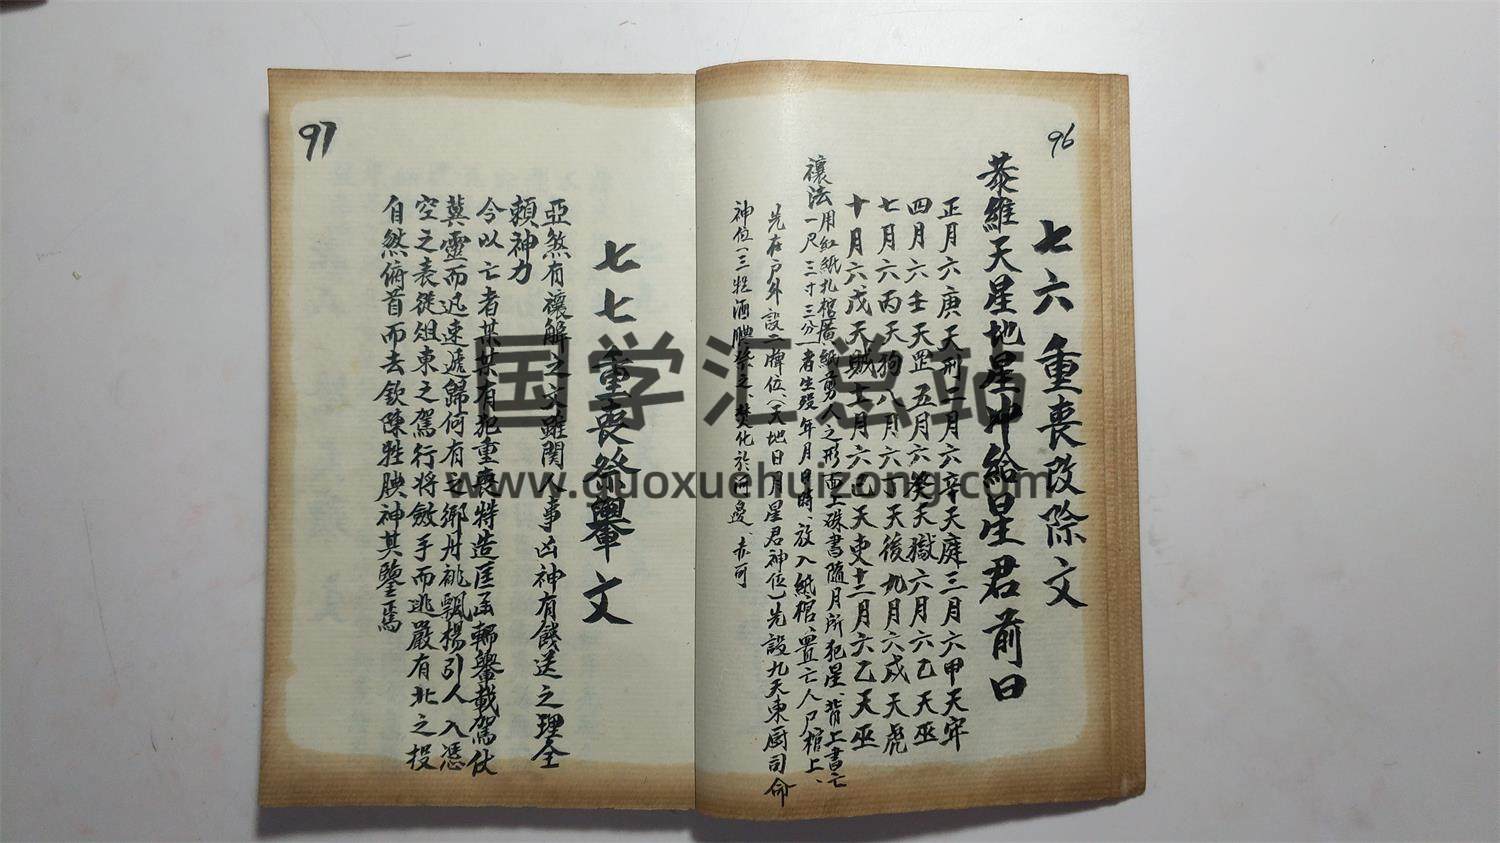 96
七六重喪改除文
恭維天星地星冲給星君前曰
正月六庚天刑二月六辛天庭三月六甲天牢
四月六壬天罡五月六癸天獄六月六乙天巫
七月六丙天狗八月六丁天後九月六戌天虎
十月六戊天賊十一月六己天吏十二月六乙天巫
禳法用紅紙扎棺廓、紙剪人之形面上硃書隨月所犯星、背上書亡
一尺三寸三分一者生歿年月日時、放入紙棺、置亡人尸棺上、
先在户外設二牌位(天地日月星君神位)先設九天東厨司命
神位(三牲酒腆祭之、焚化於河邊、亦可
97
七七重喪祭轝文
亞煞有禳解之文雖関人事凶神有餞送之理全
賴神力
今以亡者某某有犯重喪特造匡函輀轝載駕伏
冀靈而迅速遞歸何有之鄉丹祧飄揚引人入憑
空之表從俎東之駕行將斂手而逃嚴有北之投
自然俯首而去欽陳牲腆神其鑒焉
国学汇总站
www.guoxuehuizong.com